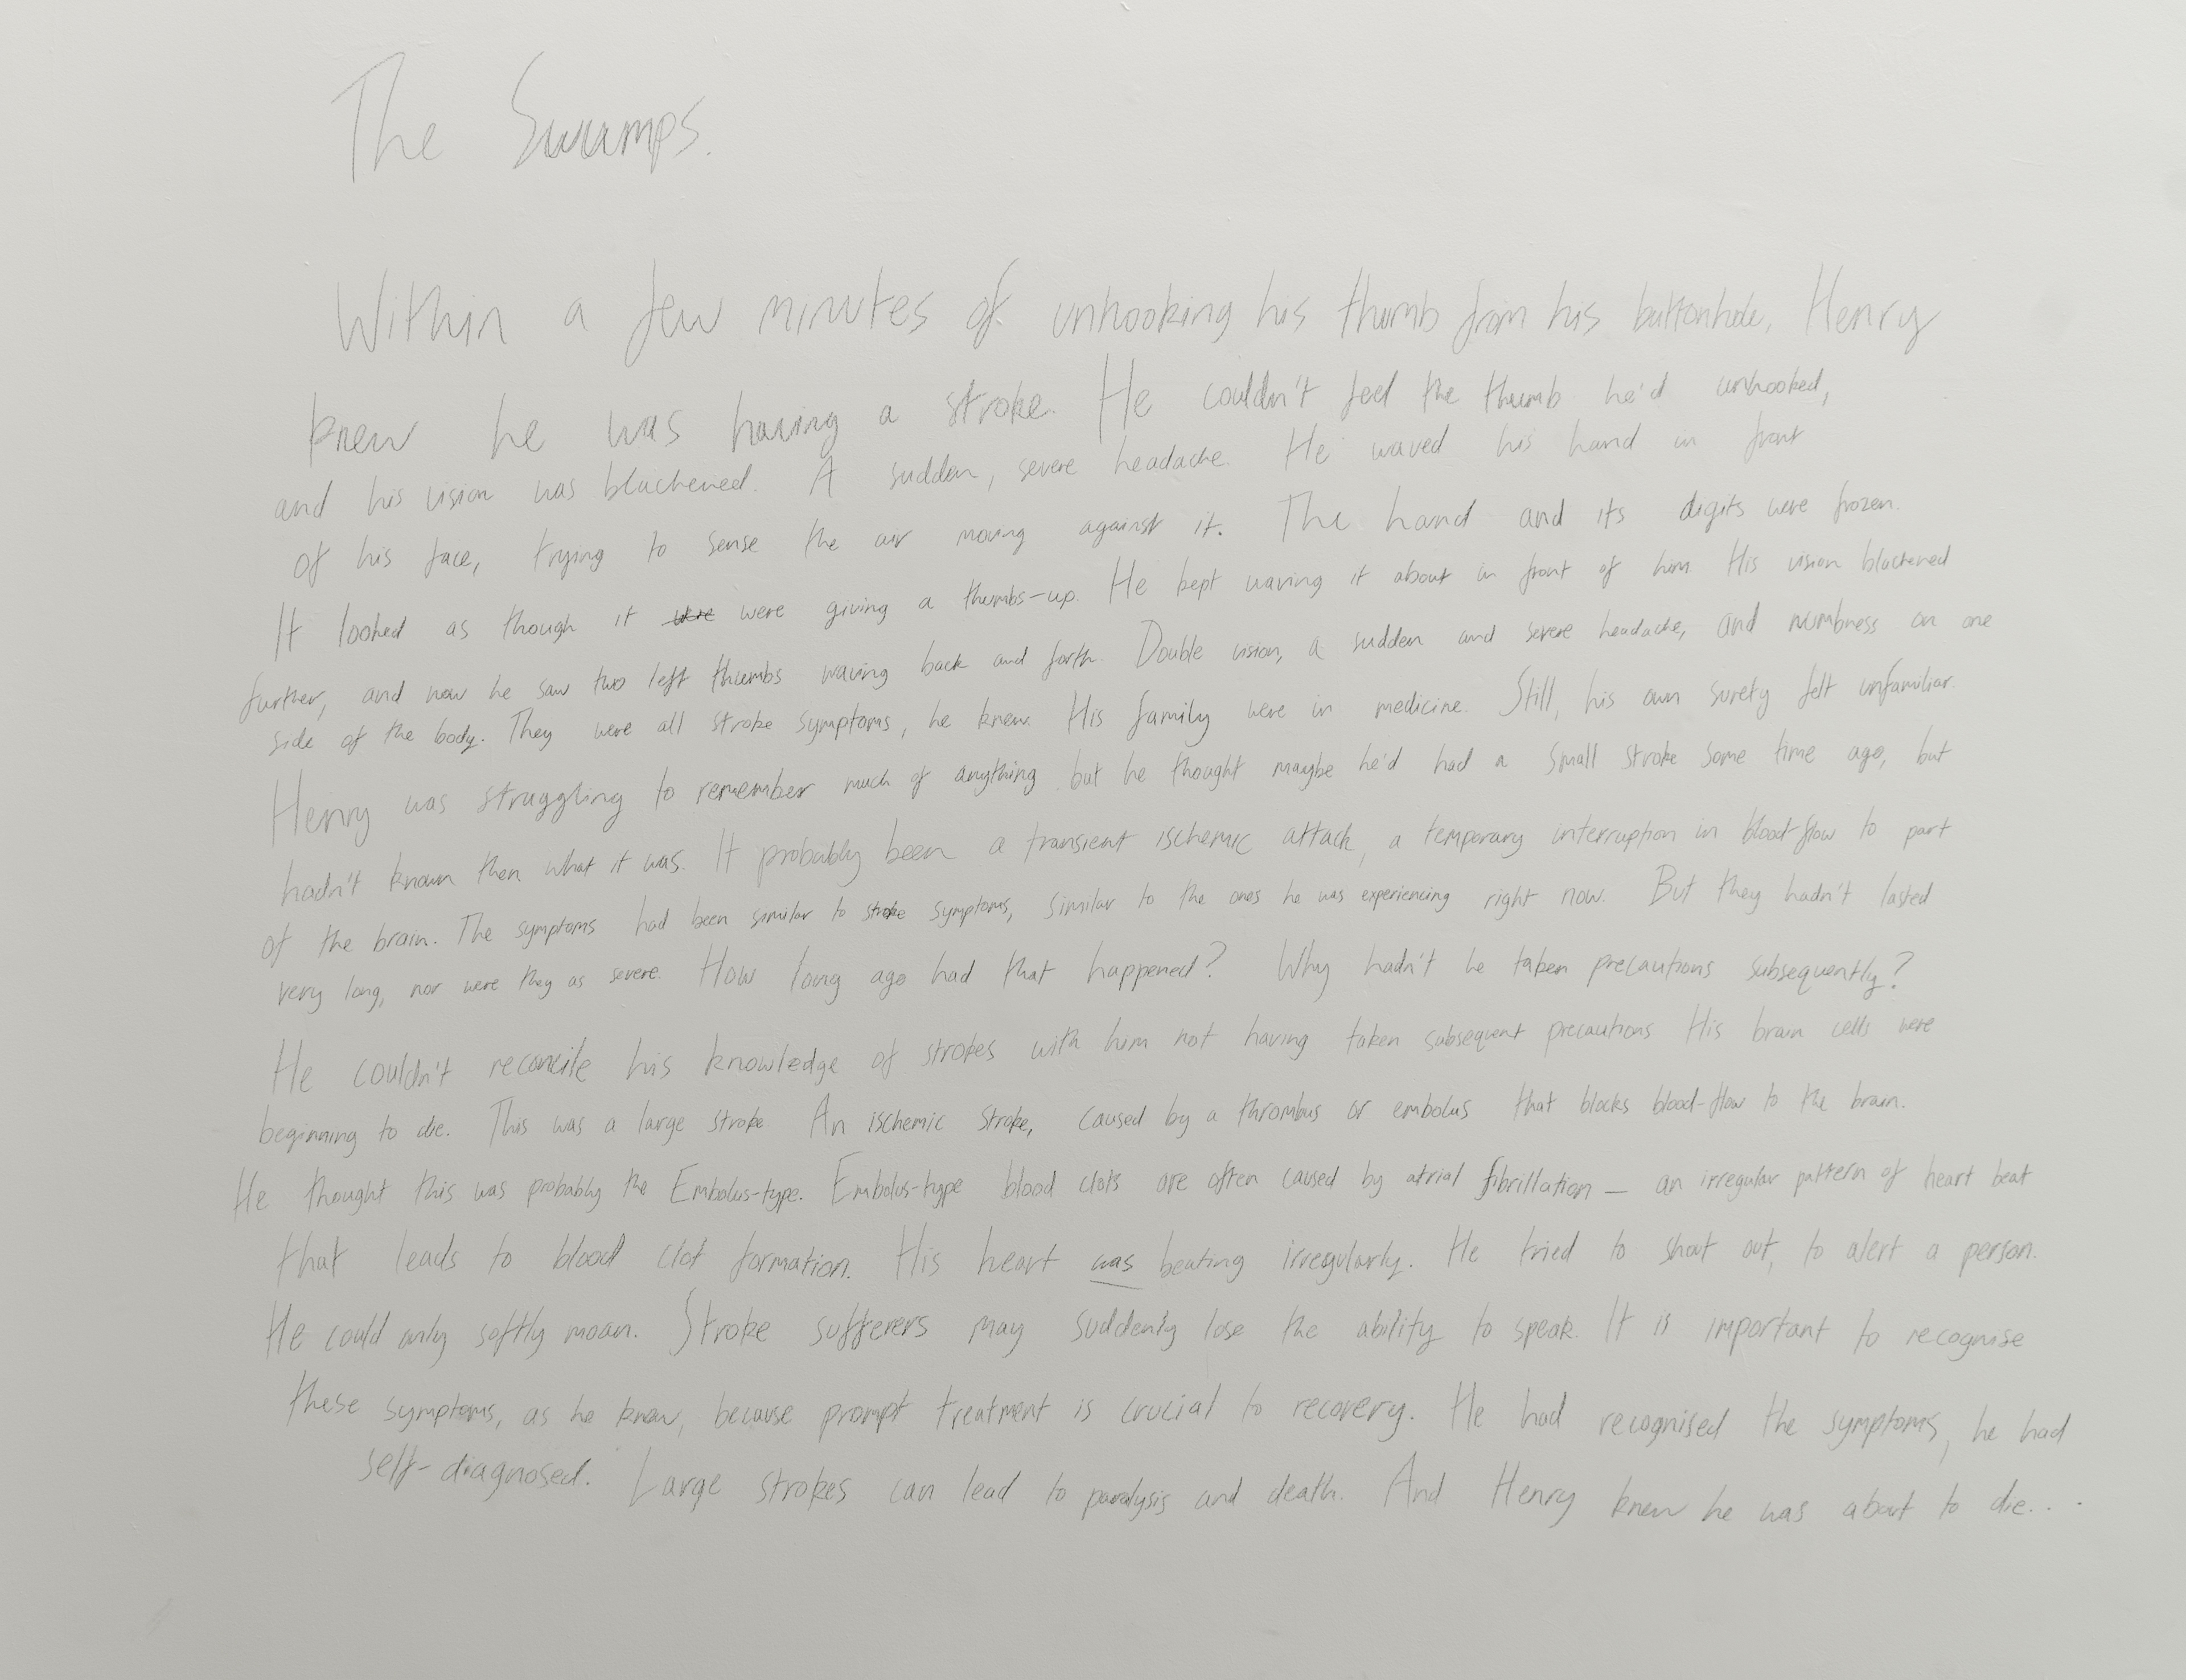 The Swamps.
Within a few minutes of unhooking his thumb from his buttonhole, Henry
knew he was having a stroke. He couldn't feel the thumb he'd unhooked,
and his vision was blackened. A sudden, severe headache. He waved his hand in front
of his face, trying to sense the air moving against it. The hand and its digits were frozen.
It looked as though it were were giving a thumbs-up. He kept waving it about in front of him. His vision blackened
further, and now he saw two left thumbs waving back and forth. Double vision, a sudden and severe headache, and numbness on one
side of the body. They were all stroke symptoms, he knew. His family were in medicine. Still, his own surety felt unfamiliar.
Henry was struggling to remember much of anything but he thought maybe he'd had a small stroke some time ago, but
hadn't known then what it was. It probably been a transient ischemic attack, a temporary interruption in blood-flow to part
of the brain. The symptoms had been similar to stroke symptoms, similar to the ones he was experiencing right now. But they hadn't lasted
very long, nor were they as severe. How long ago had that happened? Why hadn't he taken precautions subsequently?
He couldn't reconcile his knowledge of strokes with him not having taken subsequent precautions His brain cells were
beginning to die. This was a large stroke. An ischemic stroke, caused by a thrombus or embolus that blocks blood-flow to the brain.
He thought this was probably the Embolus-type. Embolus-type blood clots are often caused by atrial fibrillation — an irregular pattern of heart beat
that leads to blood clot formation. His heart was beating irregularly. He tried to shout out, to alert a person.
He could only softly moan. Stroke sufferers may suddenly lose the ability to speak. It is important to recognise
these symptoms, as he knew, because prompt treatment is crucial to recovery. He had recognised the symptoms, he had
self-diagnosed. Large strokes can lead to paralysis and death. And Henry knew he was about to die...